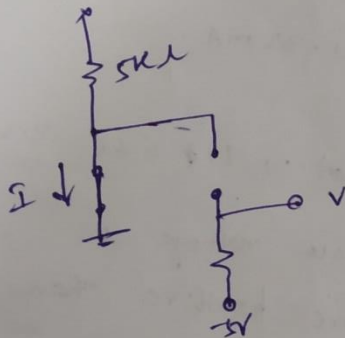 5KΩ
I
V
-5V